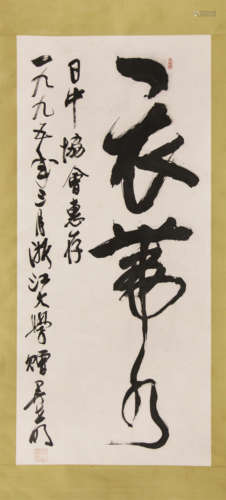 一衣帶水
日中協會惠存
一九九五年三月浙江大學